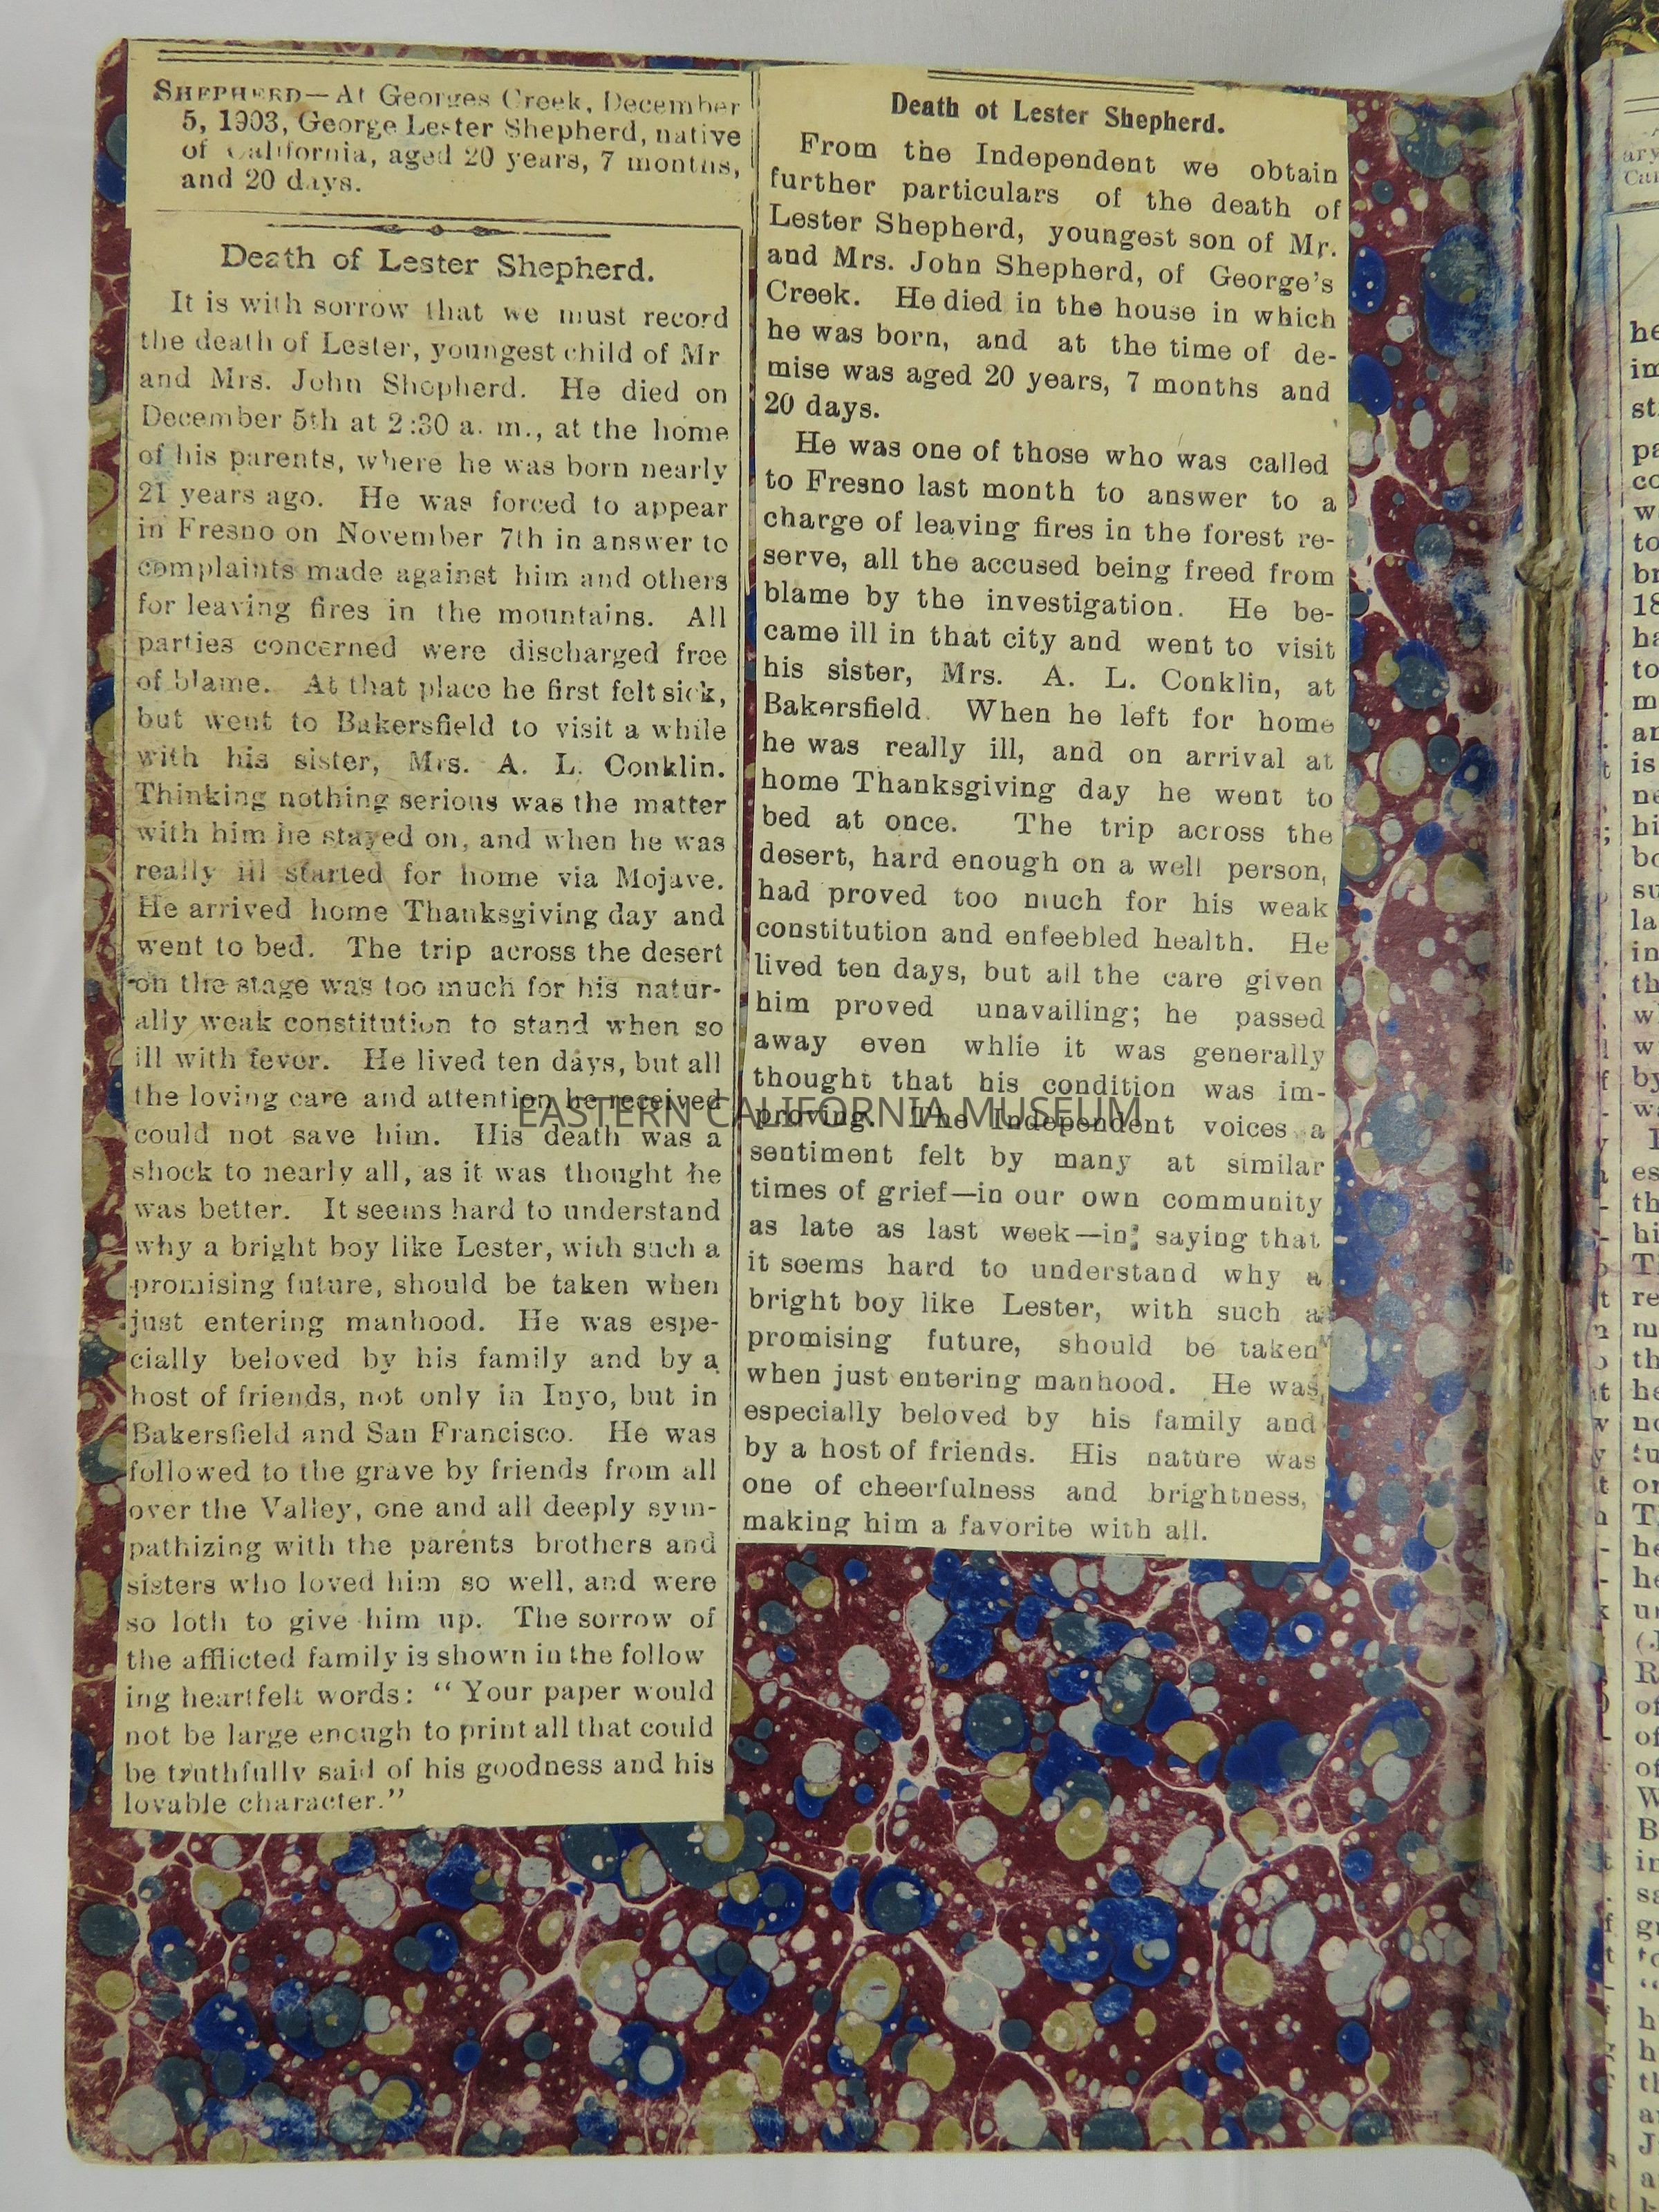 SHEPHERD—At Georges Creek, December
5, 1903, George Lester Shepherd, native
of California, aged 20 years, 7 months,
and 20 days.
Death of Lester Shepherd.
It is with sorrow that we must record
the death of Lester, youngest child of Mr
and Mrs. John Shepherd. He died on
December 5th at 2:30 a. m., at the home
of his parents, where he was born nearly
21 years ago. He was forced to appear
in Fresno on November 7th in answer to
complaints made against him and others
for leaving fires in the mountains. All
parties concerned were discharged free
of blame. At that place he first felt sick,
but went to Bakersfield to visit a while
with his sister, Mrs. A. L. Conklin.
Thinking nothing serious was the matter
with him he stayed on, and when he was
really ill started for home via Mojave.
He arrived home Thanksgiving day and
went to bed. The trip across the desert
on the stage was too much for his natur-
ally weak constitution to stand when so
ill with fever. He lived ten days, but all
the loving care and attention he received
could not save him. His death was a
shock to nearly all, as it was thought he
was better. It seems hard to understand
why a bright boy like Lester, with such a
promising future, should be taken when
just entering manhood. He was espe-
cially beloved by his family and by a
host of friends, not only in Inyo, but in
Bakersfield and San Francisco. He was
followed to the grave by friends from all
over the Valley, one and all deeply sym-
pathizing with the parents brothers and
sisters who loved him so well, and were
so loth to give him up. The sorrow of
the afflicted family is shown in the follow
ing heartfelt words: “Your paper would
not be large enough to print all that could
be truthfully said of his goodness and his
lovable character.”
Death ot Lester Shepherd.
From the Independent we obtain
further particulars of the death of
Lester Shepherd, youngest son of Mr.
and Mrs. John Shepherd, of George's
Creek. He died in the house in which
he was born, and at the time of de-
mise was aged 20 years, 7 months and
20 days.
He was one of those who was called
to Fresno last month to answer to a
charge of leaving fires in the forest re-
serve, all the accused being freed from
blame by the investigation. He be-
came ill in that city and went to visit
his sister, Mrs. A. L. Conklin, at
Bakersfield. When he left for home
he was really ill, and on arrival at
home Thanksgiving day he went to
bed at once. The trip across the
desert, hard enough on a well person,
had proved too much for his weak
constitution and enfeebled health. He
lived ten days, but all the care given
him proved unavailing; he passed
away even whlie it was generally
thought that his condition was im-
proving. The Independent voices a
sentiment felt by many at similar
times of grief—in our own community
as late as last week—in saying that
it seems hard to understand why a
bright boy like Lester, with such a
promising future, should be taken
when just entering manhood. He was
especially beloved by his family and
by a host of friends. His nature was
one of cheerfulness and brightness,
making him a favorite with all.
EASTERN CALIFORNIA MUSEUM